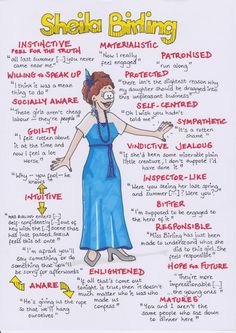 Sheila Birling
INSTINCTIVE
FEEL FOR THE TRUTH
"all last summer [...] you never
came near me".
MATERIALISTIC
"Now I really
feel engaged"
PATRONISED
"run along"
WILLING TO SPEAK UP
"I think it was a mean
thing to do"
PROTECTED
"there isn't the slightest reason why
my daughter should be dragged into
this unpleasant business"
SOCIALLY AWARE
"These girls aren't cheap
labour - they're people"
SELF-CENTRED
"Oh I wish you hadn't
told me"
SYMPATHETIC
"It's a rotten
shame"
GUILTY
"I felt rotten about
it at the time and
now I feel a lot
worse"
VINDICTIVE JEALOUS
"If she'd been some miserable plain
little creature, I don't suppose I'd
have done it"
"Why - you fool - he
knows"
INSPECTOR-LIKE
"Were you seeing her last spring
and summer? [...] Were you?"
INTUITIVE
BITTER
"I'm supposed to be engaged to
the hero of it"
RESPONSIBLE
"Miss Birling has just been
made to understand what she
did to this girl. She feels
responsible"
"I'm afraid you'll
say something or do
something that you'll
be sorry for afterwards"
ENLIGHTENED
"If all that's come out
is true, then it doesn't
much matter who it was who
made us confess"
HOPE FOR FUTURE
"They're more
impressionable [...]
the young ones"
AWARE
"He's giving us the rope
so that we'll hang
ourselves"
MATURES
"You and I aren't the
same people who sat
down to dinner here"